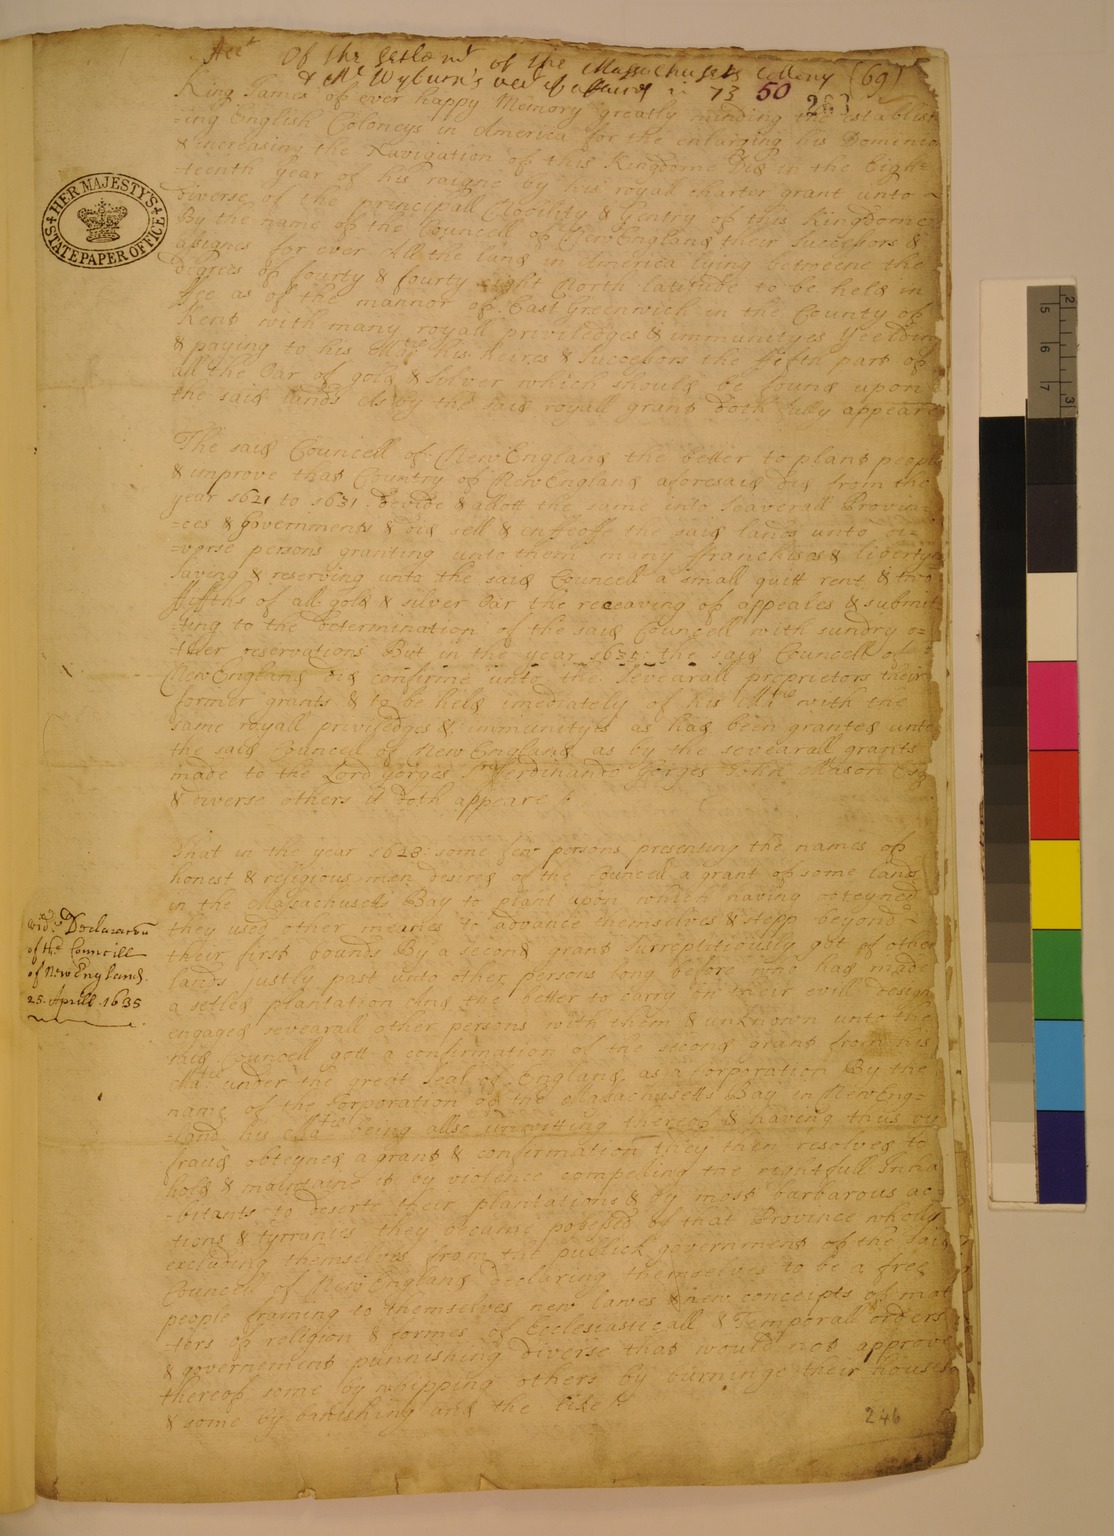 Acct Of the Setlemt of the Massachusets Collony (69)
& Mr Wyburn's 73 50
263
King James of ever happy Memory greatly minding the establish-
-ing English Coloneys in America for the enlarging his Dominion
& increasing the Navigation of this Kingdome Did in the Eigh=
-teenth year of his raigne by his royall charter grant unto
diverse of the principall Nobility & Gentry of this Kingdome
By the name of the Councell of New England their Successors &
assignes for ever All the land in America lying betweene the
degrees of fourty & fourty eight North latitude to be held in
ffee as of the mannor of East Greenwich in the County of
Kent with many royall priviledges & immunityes Yeelding
& paying to his Matie his heires & Successors the ffifth part of
all the Oar of gold & Silver which should be found upon
the said lands As by the said royall grant doth fully appeare
HER MAJESTY'S
STATE PAPER OFFICE
The said Councell of New England the better to plant people
& improve that Country of New England aforesaid did from the
year 1621 to 1631 devide & allott the same into Severall Provin-
=ces & Governments & did sell & enffeoffe the said lands unto di-
-verse persons granting unto them many franchises & libertyes
saving & reserving unto the said Councell a small quitt rent & two
ffiffths of all gold & silver Oar the receaving of appeales & submit-
-ting to the determination of the said Councell with sundry o=
-ther reservations But in the year 1635 the said Councell of
New England did confirme unto the severall proprietors their
former grants & to be held imediately of his Matie with the
same royall priviledges & immunityes as had been granted unto
the said Councell of New England as by the severall grants
made to the Lord Gorges Sr Ferdinando Gorges John Mason Esq
& diverse others it doth appeare
That in the year 1628 some few persons presenting the names of
honest & religious men desired of the Councell a grant of some land
in the Masachusetts Bay to plant upon which having obteyned
they used other meanes to advance themselves & stepp beyond
their first bounds By a second grant Surreptitiously got of other
lands justly past unto other persons long before who had made
a setled plantation And the better to carry on their evill design
engaged severall other persons with them & unknown unto the
said Councell gott a confirmation of the second grant from his
Matie under the great Seal of England as a Corporation By the
name of the Corporation of the Masachusetts Bay in New Eng=
=land his Matie being allso unwitting thereof & having thus by
fraud obteyned a grant & confirmation they then resolved to
hold & maintaine it by violence compelling the rightfull Inha
-bitants to deserte their plantations & by most barbarous ac-
tions & tyrranies they became possessed of that Province wholly
excluding themselves from the publick government of the said
Councell of New England declaring themselves to be a free
people framing to themselves new lawes & new concepts of mat
-ters of religion & formes of Ecclesiasticall & Temporall orders
& governement punnishing diverse that would not approve
thereof some by whipping others by burninge their houses
& some by banishing and the like
vide Declaracon
of the Councill
of New England.
25. Aprill. 1635
246